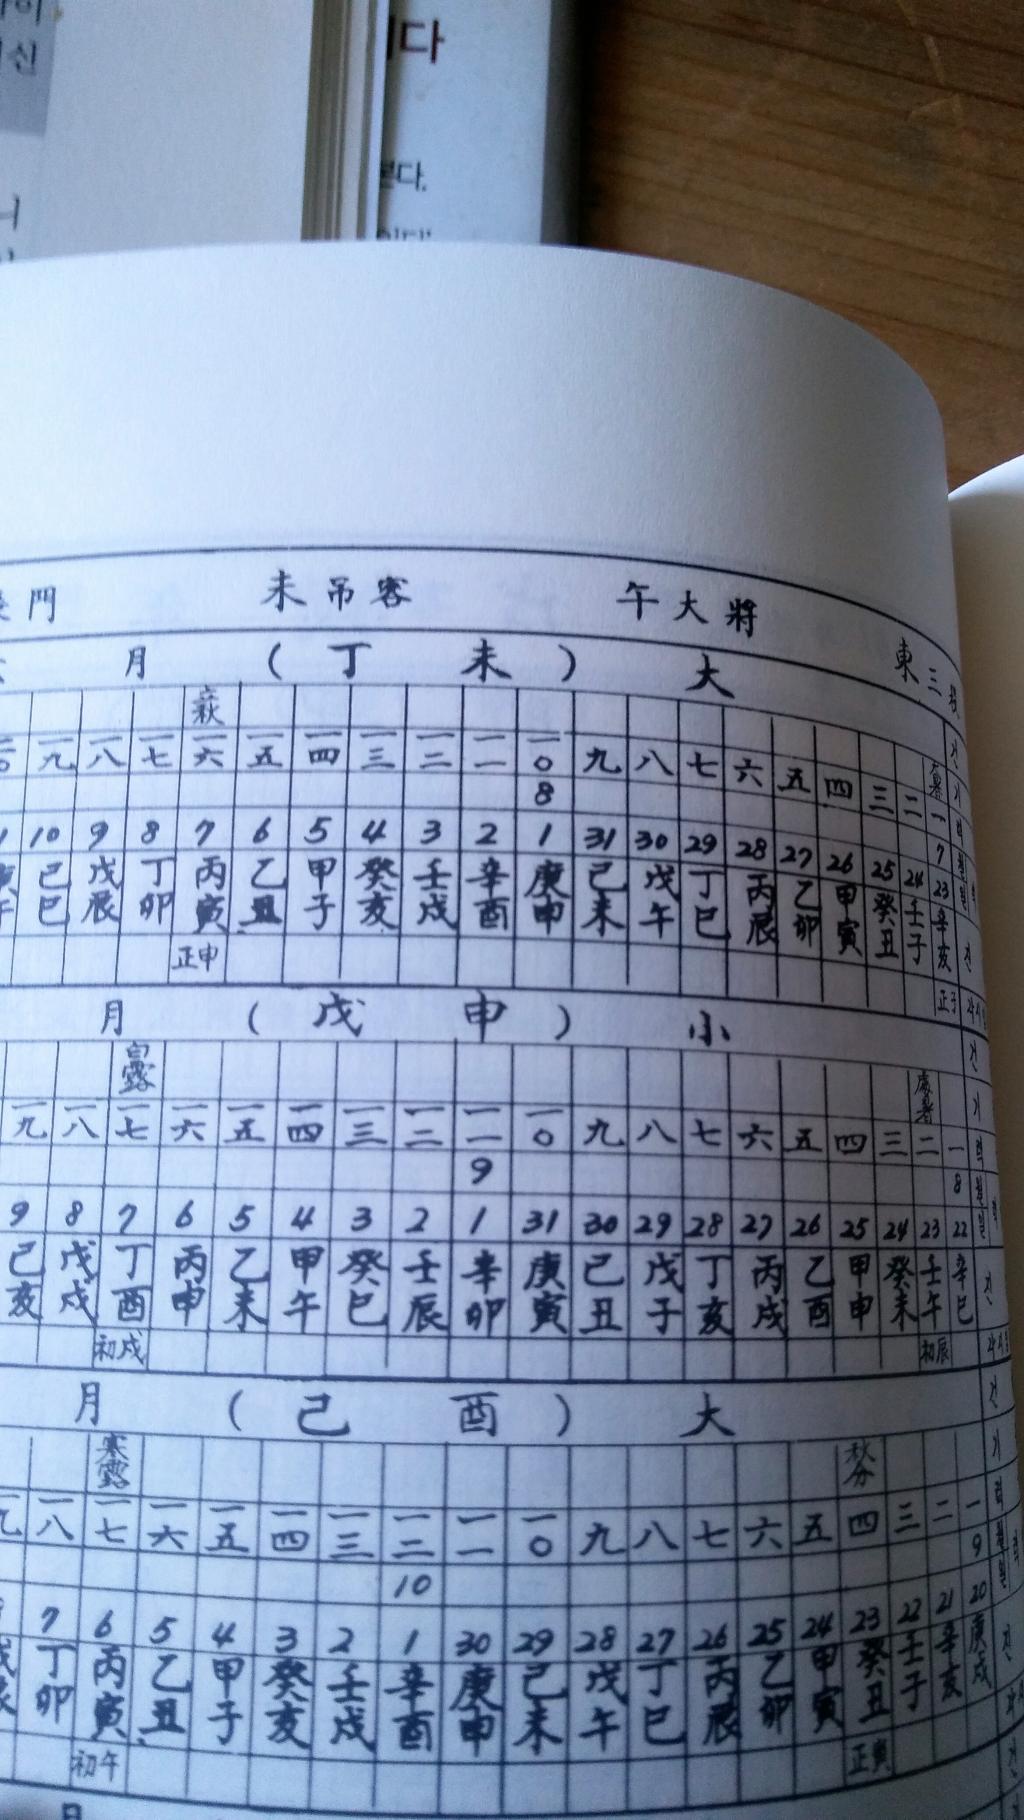 신
다
니
본다.
長門 未吊客 午大將 東三殺
月 ( 丁 未 ) 大
立秋 大暑
九 一八 一七 一六 一五 一四 一三 一二 一一 一〇 九 八 七 六 五 四 三 二 一
8 7
10 9 8 7 6 5 4 3 2 1 31 30 29 28 27 26 25 24 23
己巳 戊辰 丁卯 丙寅 乙丑 甲子 癸亥 壬戌 辛酉 庚申 己未 戊午 丁巳 丙辰 乙卯 甲寅 癸丑 壬子 辛亥
正申 正子
月 ( 戊 申 ) 小
白露 處暑
一九 一八 一七 一六 一五 一四 一三 一二 一一 一〇 九 八 七 六 五 四 三 二 一
9 8
9 8 7 6 5 4 3 2 1 31 30 29 28 27 26 25 24 23 22
己亥 戊戌 丁酉 丙申 乙未 甲午 癸巳 壬辰 辛卯 庚寅 己丑 戊子 丁亥 丙戌 乙酉 甲申 癸未 壬午 辛巳
初戌 初辰
月 ( 己 酉 ) 大
寒露 秋分
一八 一七 一六 一五 一四 一三 一二 一一 一〇 九 八 七 六 五 四 三 二 一
10 9
7 6 5 4 3 2 1 30 29 28 27 26 25 24 23 22 21 20
丁卯 丙寅 乙丑 甲子 癸亥 壬戌 辛酉 庚申 己未 戊午 丁巳 丙辰 乙卯 甲寅 癸丑 壬子 辛亥 庚戌
初午 正寅
月